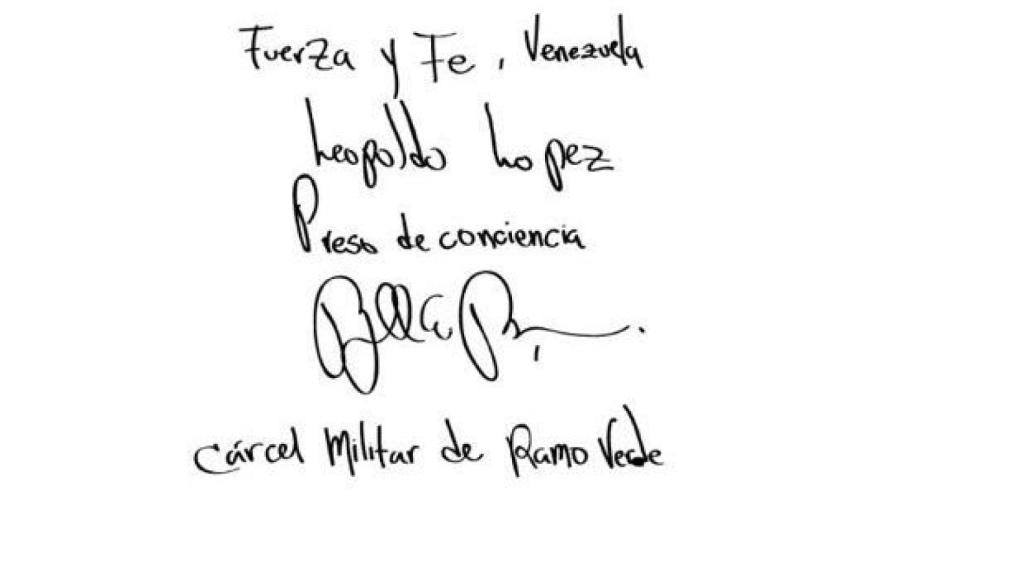 Fuerza y Fe, Venezuela
Leopoldo Lopez
Preso de conciencia
Cárcel Militar de Ramo Verde